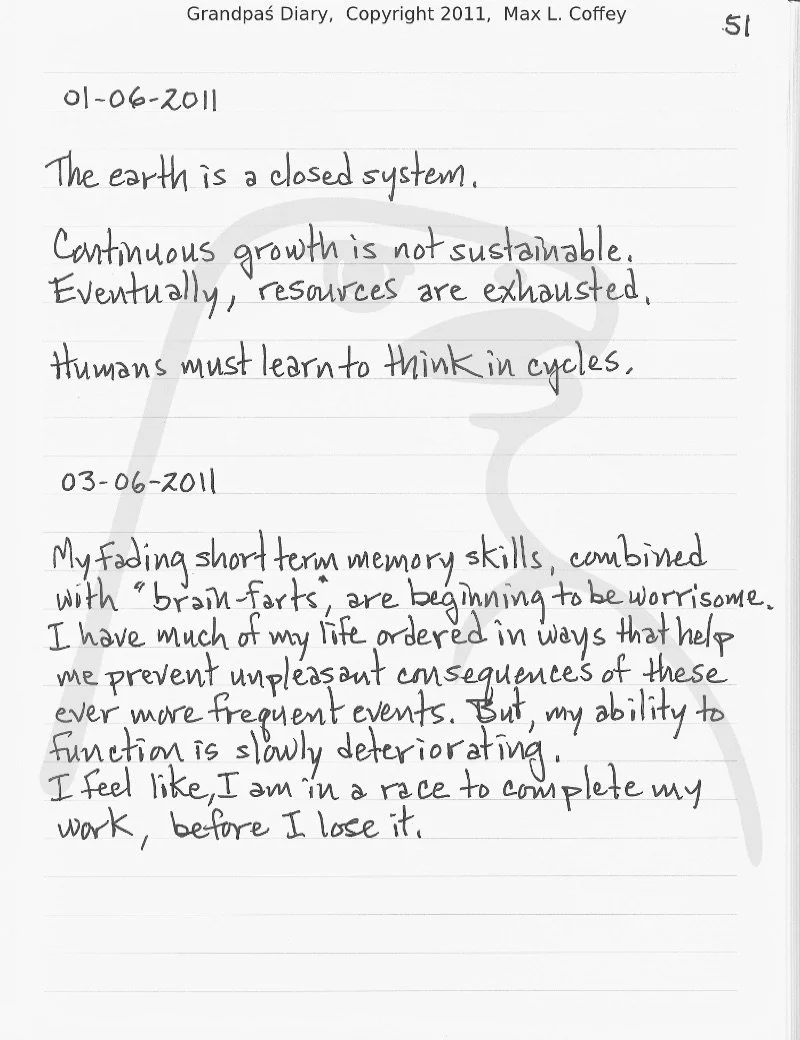 Grandpaś Diary, Copyright 2011, Max L. Coffey
51
01-06-2011
The earth is a closed system.
Continuous growth is not sustainable.
Eventually, resources are exhausted.
Humans must learn to think in cycles.
03-06-2011
My fading short term memory skills, combined
with "brain-farts", are beginning to be worrisome.
I have much of my life ordered in ways that help
me prevent unpleasant consequences of these
ever more frequent events. But, my ability to
function is slowly deteriorating.
I feel like, I am in a race to complete my
work, before I lose it.